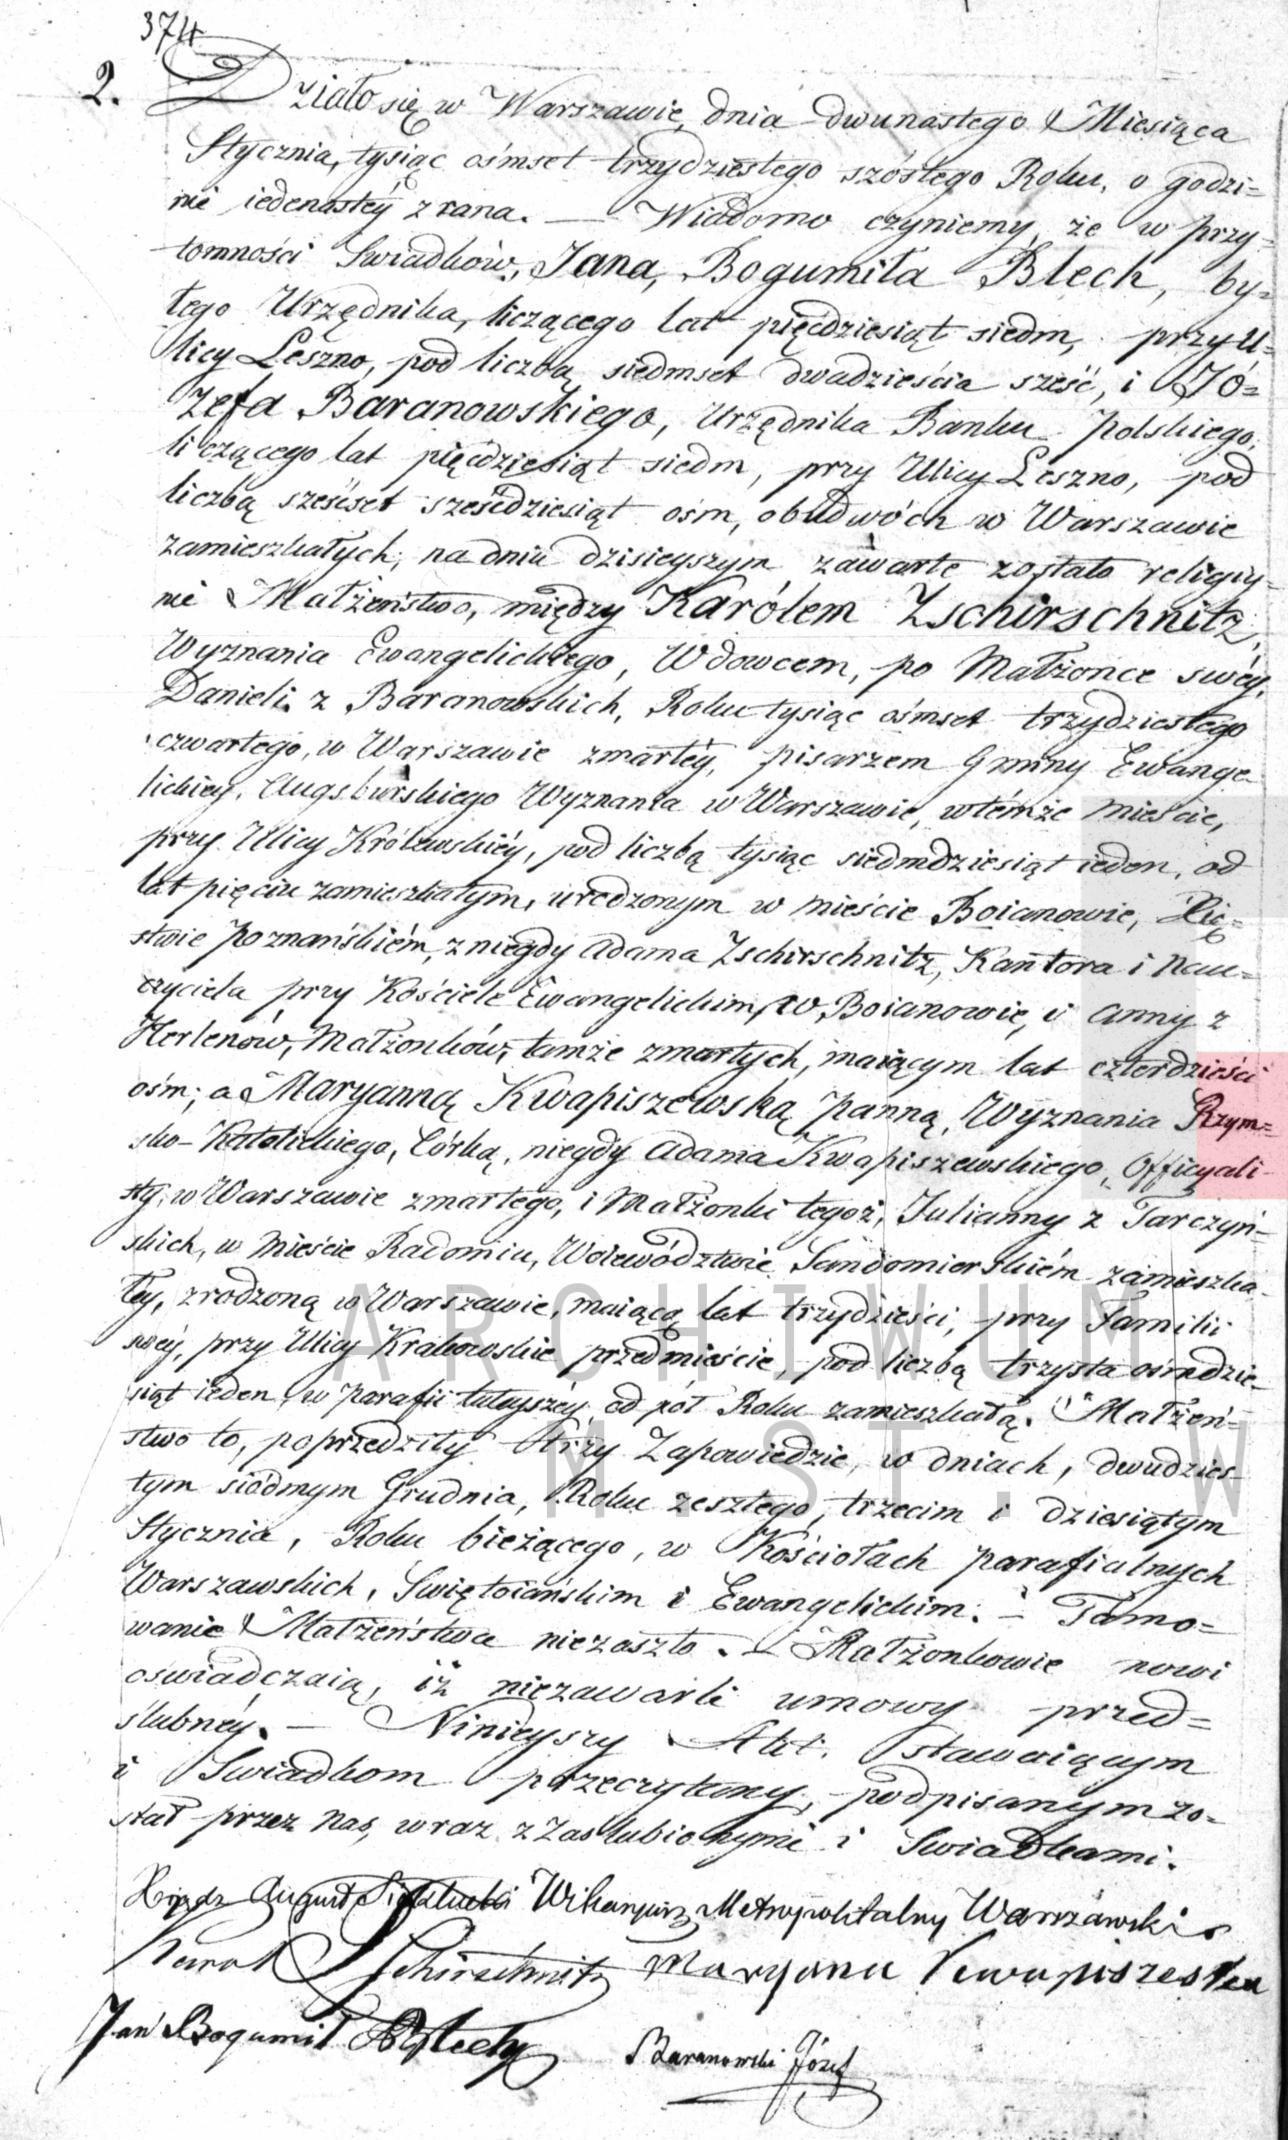 374
2. Działo się w Warszawie, dnia dwunastego Miesiąca
Stycznia, tysiąc ośmset trzydziestego szóstego Roku, o godzi=
nie iedenastéy z rana. — Wiadomo czyniemy, że w przy=
tomności Swiadków, Jana, Bogumiła Blech, by=
łego Urzędnika, liczącego lat pięćdziesiąt siedm, przy U=
licy Leszno, pod liczbą siedmset dwadzieścia sześć, i Jó=
zefa Baranowskiego, Urzędnika Banku Polskiego,
liczącego lat pięćdziesiąt siedm, przy Ulicy Leszno, pod
liczbą sześćset sześćdziesiąt ośm, obudwóch w Warszawie
zamieszkałych; na dniu dzisieyszym zawarte zostało religiy=
nie Małżeństwo, między Karólem Zschirschnitz,
Wyznania Ewangelickiego, Wdowcem, po Małżonce swéy,
Danieli z Baranowskich, Roku tysiąc ośmset trzydziestego
czwartego, w Warszawie zmarłéy, pisarzem Gminy Ewange
lickiey, Augsburskiego Wyznania w Warszawie, w témże mieście,
przy Ulicy Królewskiéy, pod liczbą tysiąc siedmdziesiąt ieden, od
lat pięciu zamieszkałym, urodzonym w mieście Boianowie, Xię=
stwie Poznańskiém, z niegdy Adama Zschirschnitz, Kantora i Nau=
czyciela przy Kościele Ewangelickim, w Boianowie, i Anny z
Herlenów, Małżonków, tamże zmarłych, maiącym lat czterdzieści
ośm; a Maryanną Kwapiszewską Panną, Wyznania Rzym=
sko-Katolickiego, Córką, niegdy Adama Kwapiszewskiego, Officyali
sty, w Warszawie zmarłego, i Małżonki tegoż, Julianny z Tarczyń=
skich, w mieście Radomiu, Woiewództwie Sandomierskiém zamieszka=
łéy, zrodzoną w Warszawie, maiącą lat trzydzieści, przy Familii
swéy, przy Ulicy Krakowskie przedmieście, pod liczbą trzysta ośmdzie=
siąt ieden, w parafii tuteyszéy od pół Roku zamieszkałą. Małżeń=
stwo to, poprzedziły trzy Zapowiedzie, w dniach, dwudzies=
tym siódmym Grudnia, Roku zeszłego, trzecim i dziesiątym
Stycznia, Roku bieżącego, w Kościołach parafialnych
Warszawskich, Swiętoiańskim i Ewangelickim. — Tamo=
wanie Małżeństwa niezaszło. — Małżonkowie nowi
oświadczaią, iż niezawarli umowy przed=
ślubnéy. — Ninieyszy Akt. stawaiącym
i Swiadkom przeczytany, podpisanym zo=
stał przez Nas, wraz z Zaślubionymi i Swiadkami.
Xiądz August Wikaryusz Metropolitalny Warszawski
Karol Zschirschnitz Maryana Kwapiszeska
Jan Bogumił Blech
Baranowski Józef
ARCHIWUM
M. ST. W